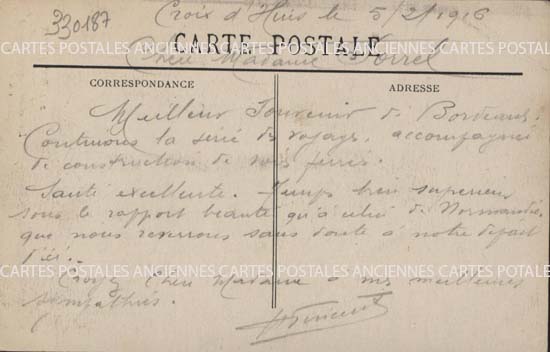 330187
Croix d'Hins le 5/2/1916
CARTE POSTALE
Chère Madame
CORRESPONDANCE
ADRESSE
Meilleur Souvenir de Bordeaux.
Continuons la série des voyages, accompagnés
de construction de voies ferrées.
Santé excellente. Temps bien supérieur
sous le rapport beauté qu'à celui de Normandie,
que nous reverrons sans doute à notre départ
d'ici.
CARTES POSTALES ANCIENNES CARTES POSTALES ANCIENNES CARTES POTALE
Croyez Chère Madame à mes meilleures
sympathies.